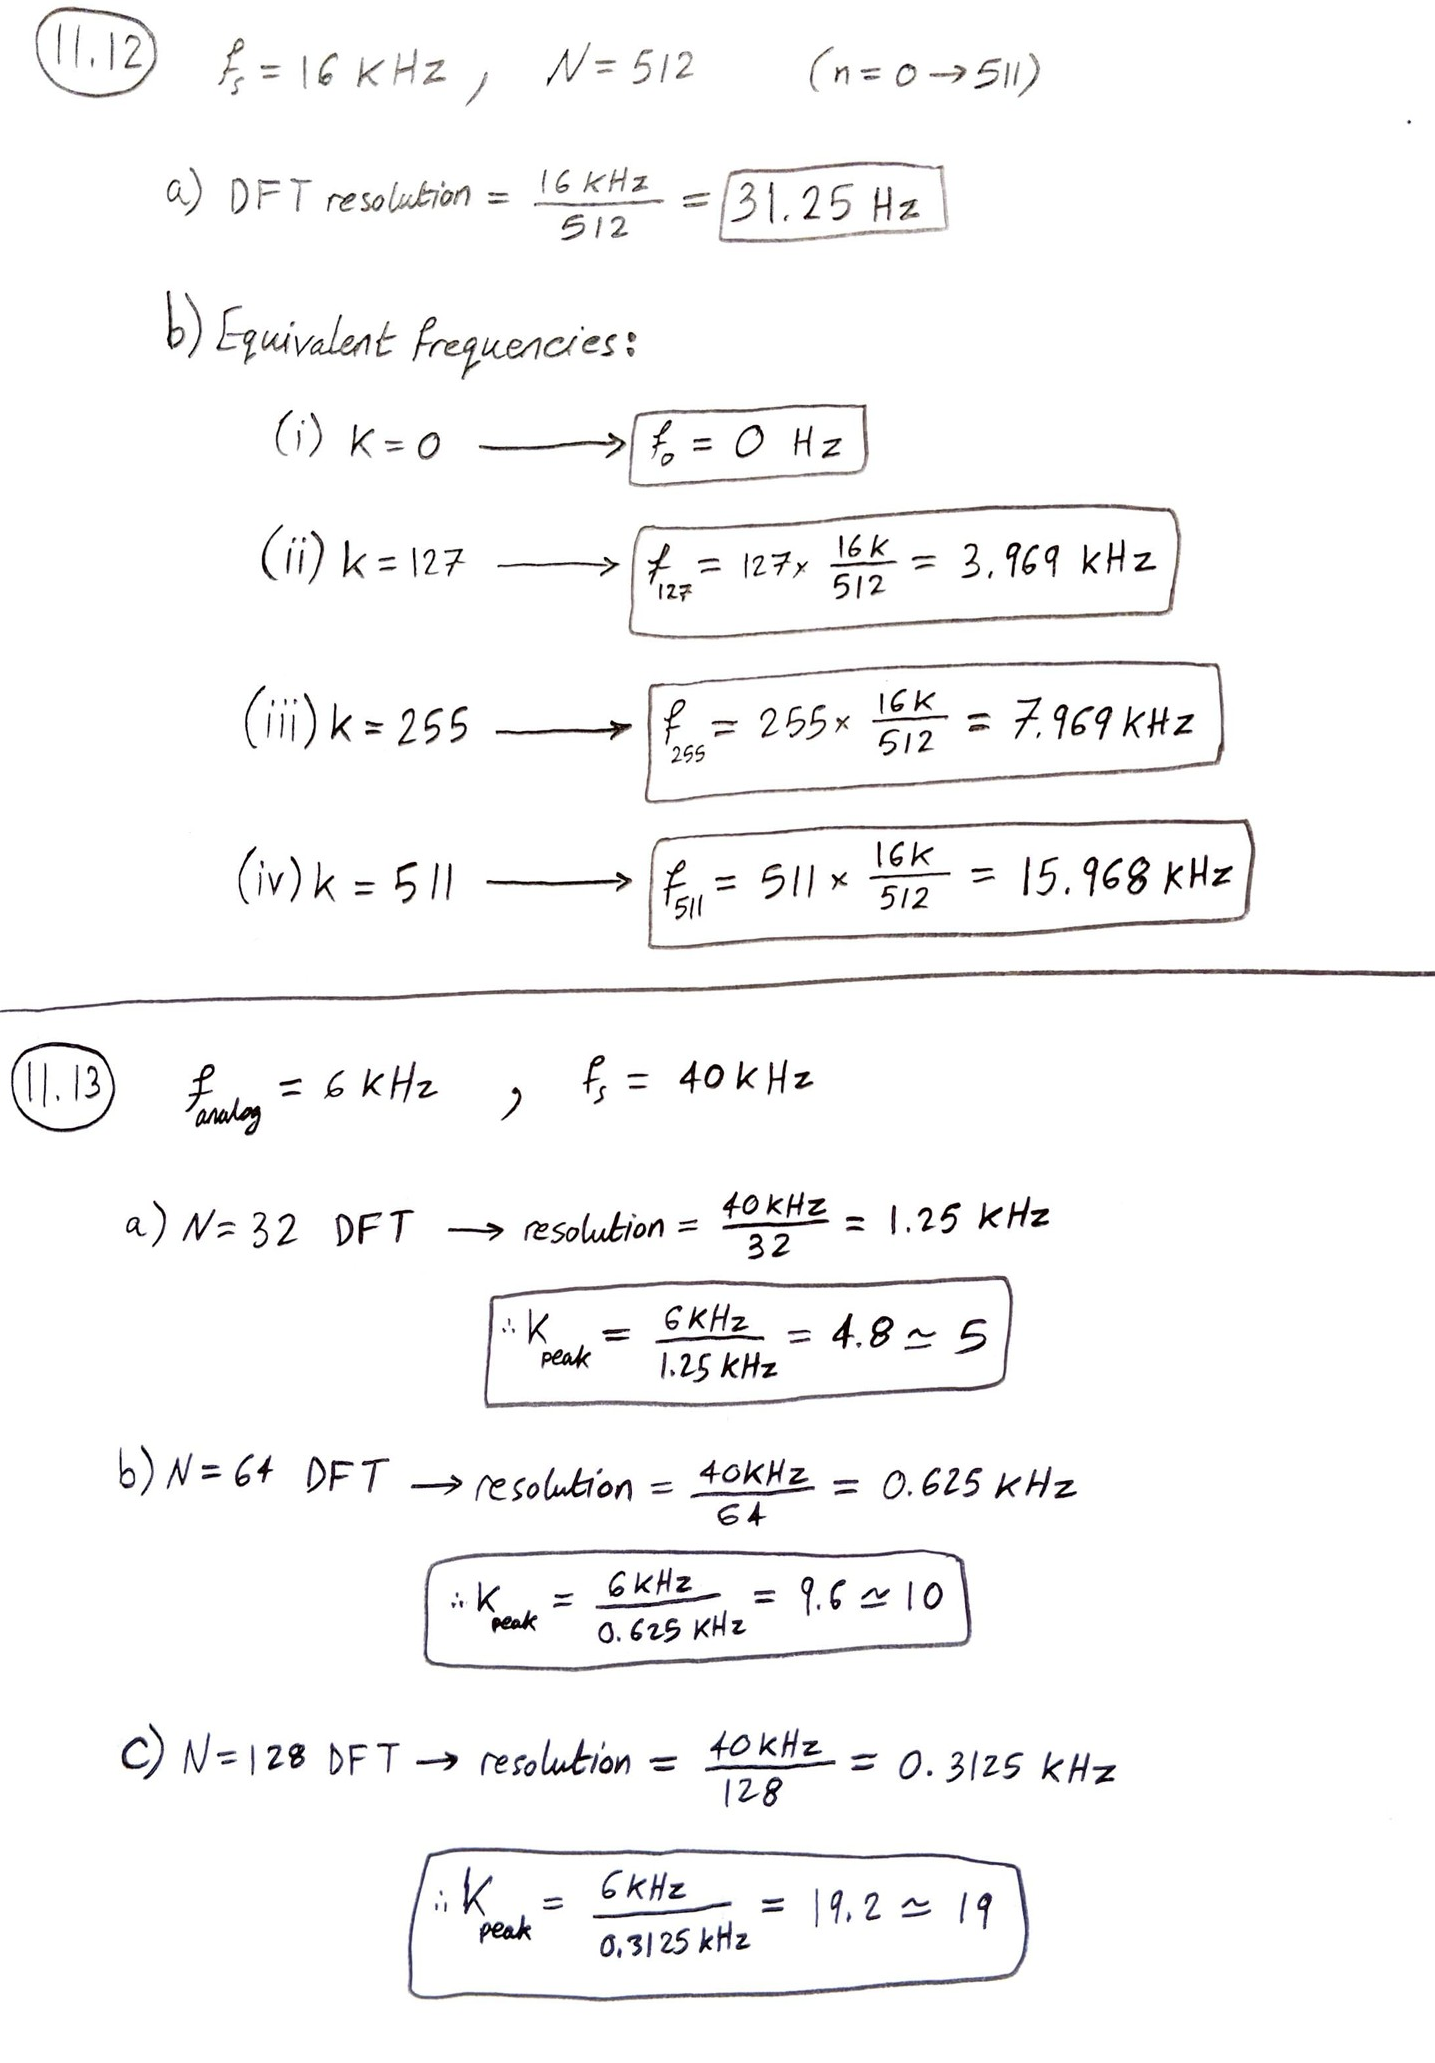 11.12 fs = 16 KHz, N = 512 (n = 0 → 511)
a) DFT resolution = 16 KHz / 512 = 31.25 Hz
b) Equivalent frequencies:
(i) K = 0 → f0 = 0 Hz
(ii) k = 127 → f127 = 127 × 16K / 512 = 3.969 kHz
(iii) k = 255 → f255 = 255 × 16K / 512 = 7.969 KHz
(iv) k = 511 → f511 = 511 × 16K / 512 = 15.968 KHz
11.13 fanalog = 6 KHz , fs = 40 KHz
a) N = 32 DFT → resolution = 40 KHz / 32 = 1.25 KHz
∴ Kpeak = 6 KHz / 1.25 KHz = 4.8 ≃ 5
b) N = 64 DFT → resolution = 40KHz / 64 = 0.625 KHz
∴ Kpeak = 6 KHz / 0.625 KHz = 9.6 ≃ 10
c) N = 128 DFT → resolution = 40 KHz / 128 = 0.3125 KHz
∴ Kpeak = 6 KHz / 0.3125 KHz = 19.2 ≃ 19